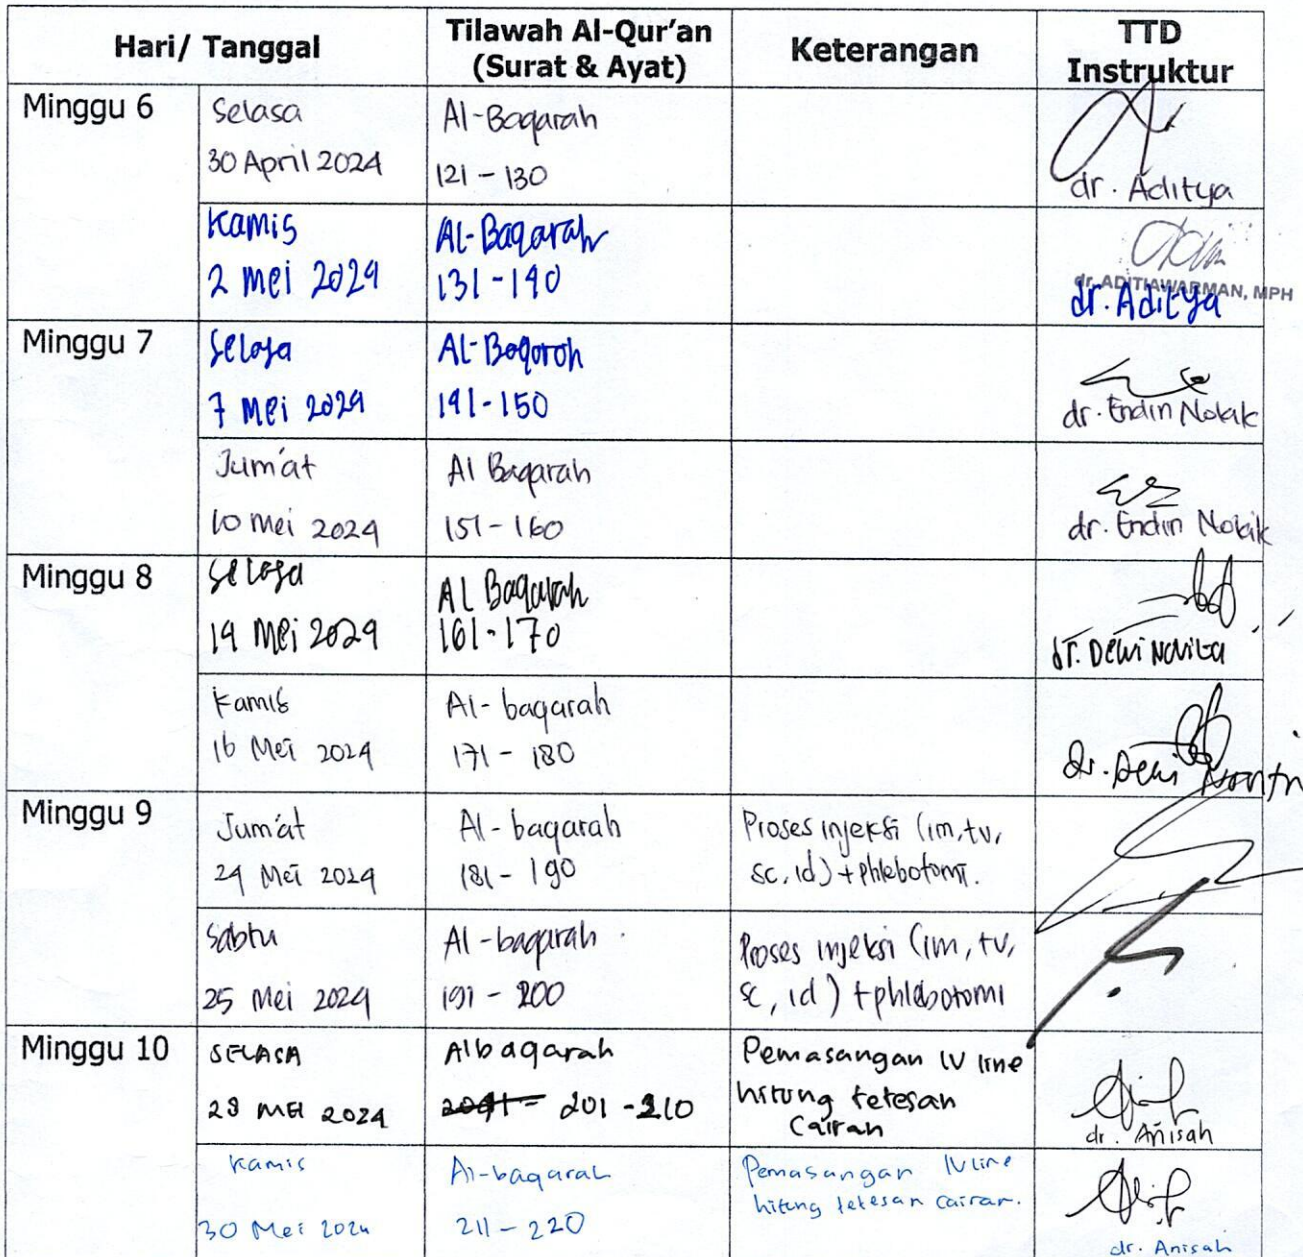 Hari/ Tanggal
Tilawah Al-Qur'an
(Surat & Ayat)
Keterangan
TTD
Instruktur
Minggu 6
Selasa
30 April 2024
Al-Baqarah
121 - 130
dr. Aditya
Kamis
2 Mei 2024
Al-Baqarah
131 - 140
dr. ADITIAWARMAN, MPH
dr. Aditya
Minggu 7
Selasa
7 Mei 2024
Al-Baqoroh
141 - 150
dr. Endin Nokik
Jum'at
10 Mei 2024
Al Baqarah
151 - 160
dr. Endin Nokik
Minggu 8
Selasa
14 Mei 2024
Al Baqarah
161 - 170
dr. Dewi Novita
Kamis
16 Mei 2024
Al-baqarah
171 - 180
dr. Dewi
Minggu 9
Jum'at
24 Mei 2024
Al-baqarah
181 - 190
Proses injeksi (im, iv,
sc, id) + phlebotomi.
Sabtu
25 Mei 2024
Al-baqarah
191 - 200
Proses injeksi (im, iv,
sc, id) + phlebotomi
Minggu 10
SELASA
28 MEI 2024
Albaqarah
201 - 210
Pemasangan IV line
hitung tetesan
Cairan
dr. Anisah
Kamis
30 Mei 2024
Al-baqarah
211 - 220
Pemasangan IV line
hitung tetesan cairan.
dr. Anisah